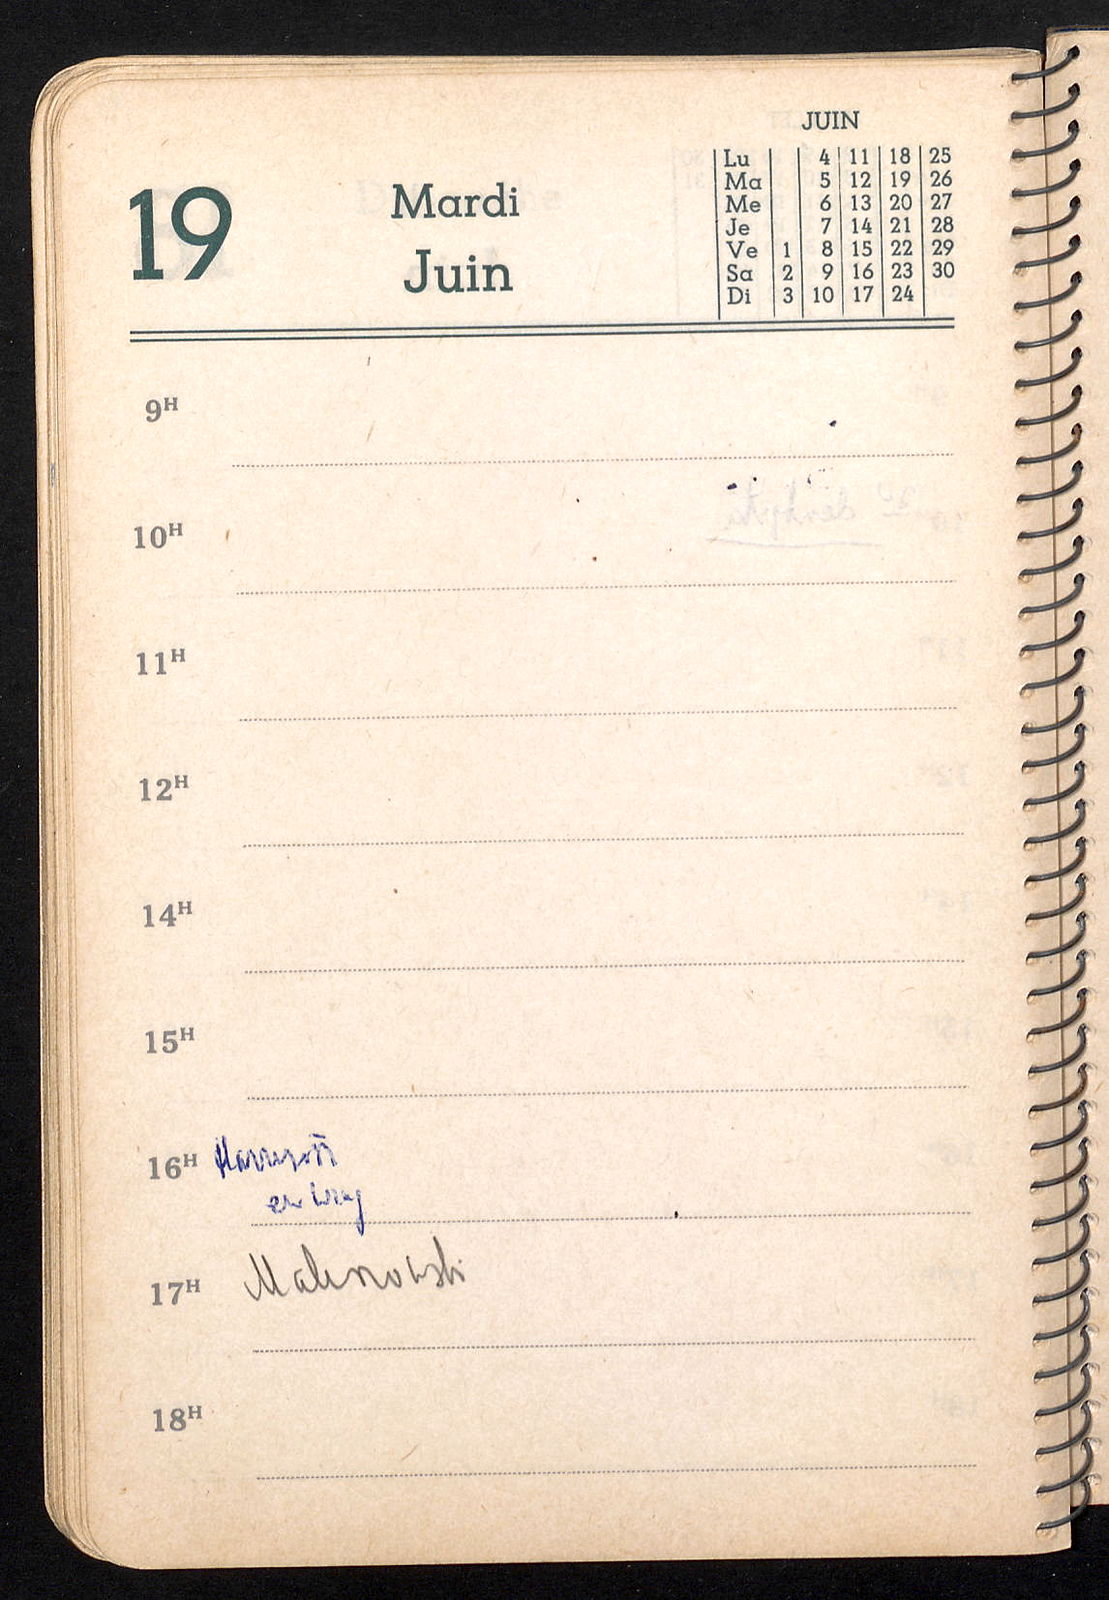 JUIN
19 Mardi
Juin
Lu 4 11 18 25
Ma 5 12 19 26
Me 6 13 20 27
Je 7 14 21 28
Ve 1 8 15 22 29
Sa 2 9 16 23 30
Di 3 10 17 24
9H
10H
11H
12H
14H
15H
16H
17H Malinowski
18H